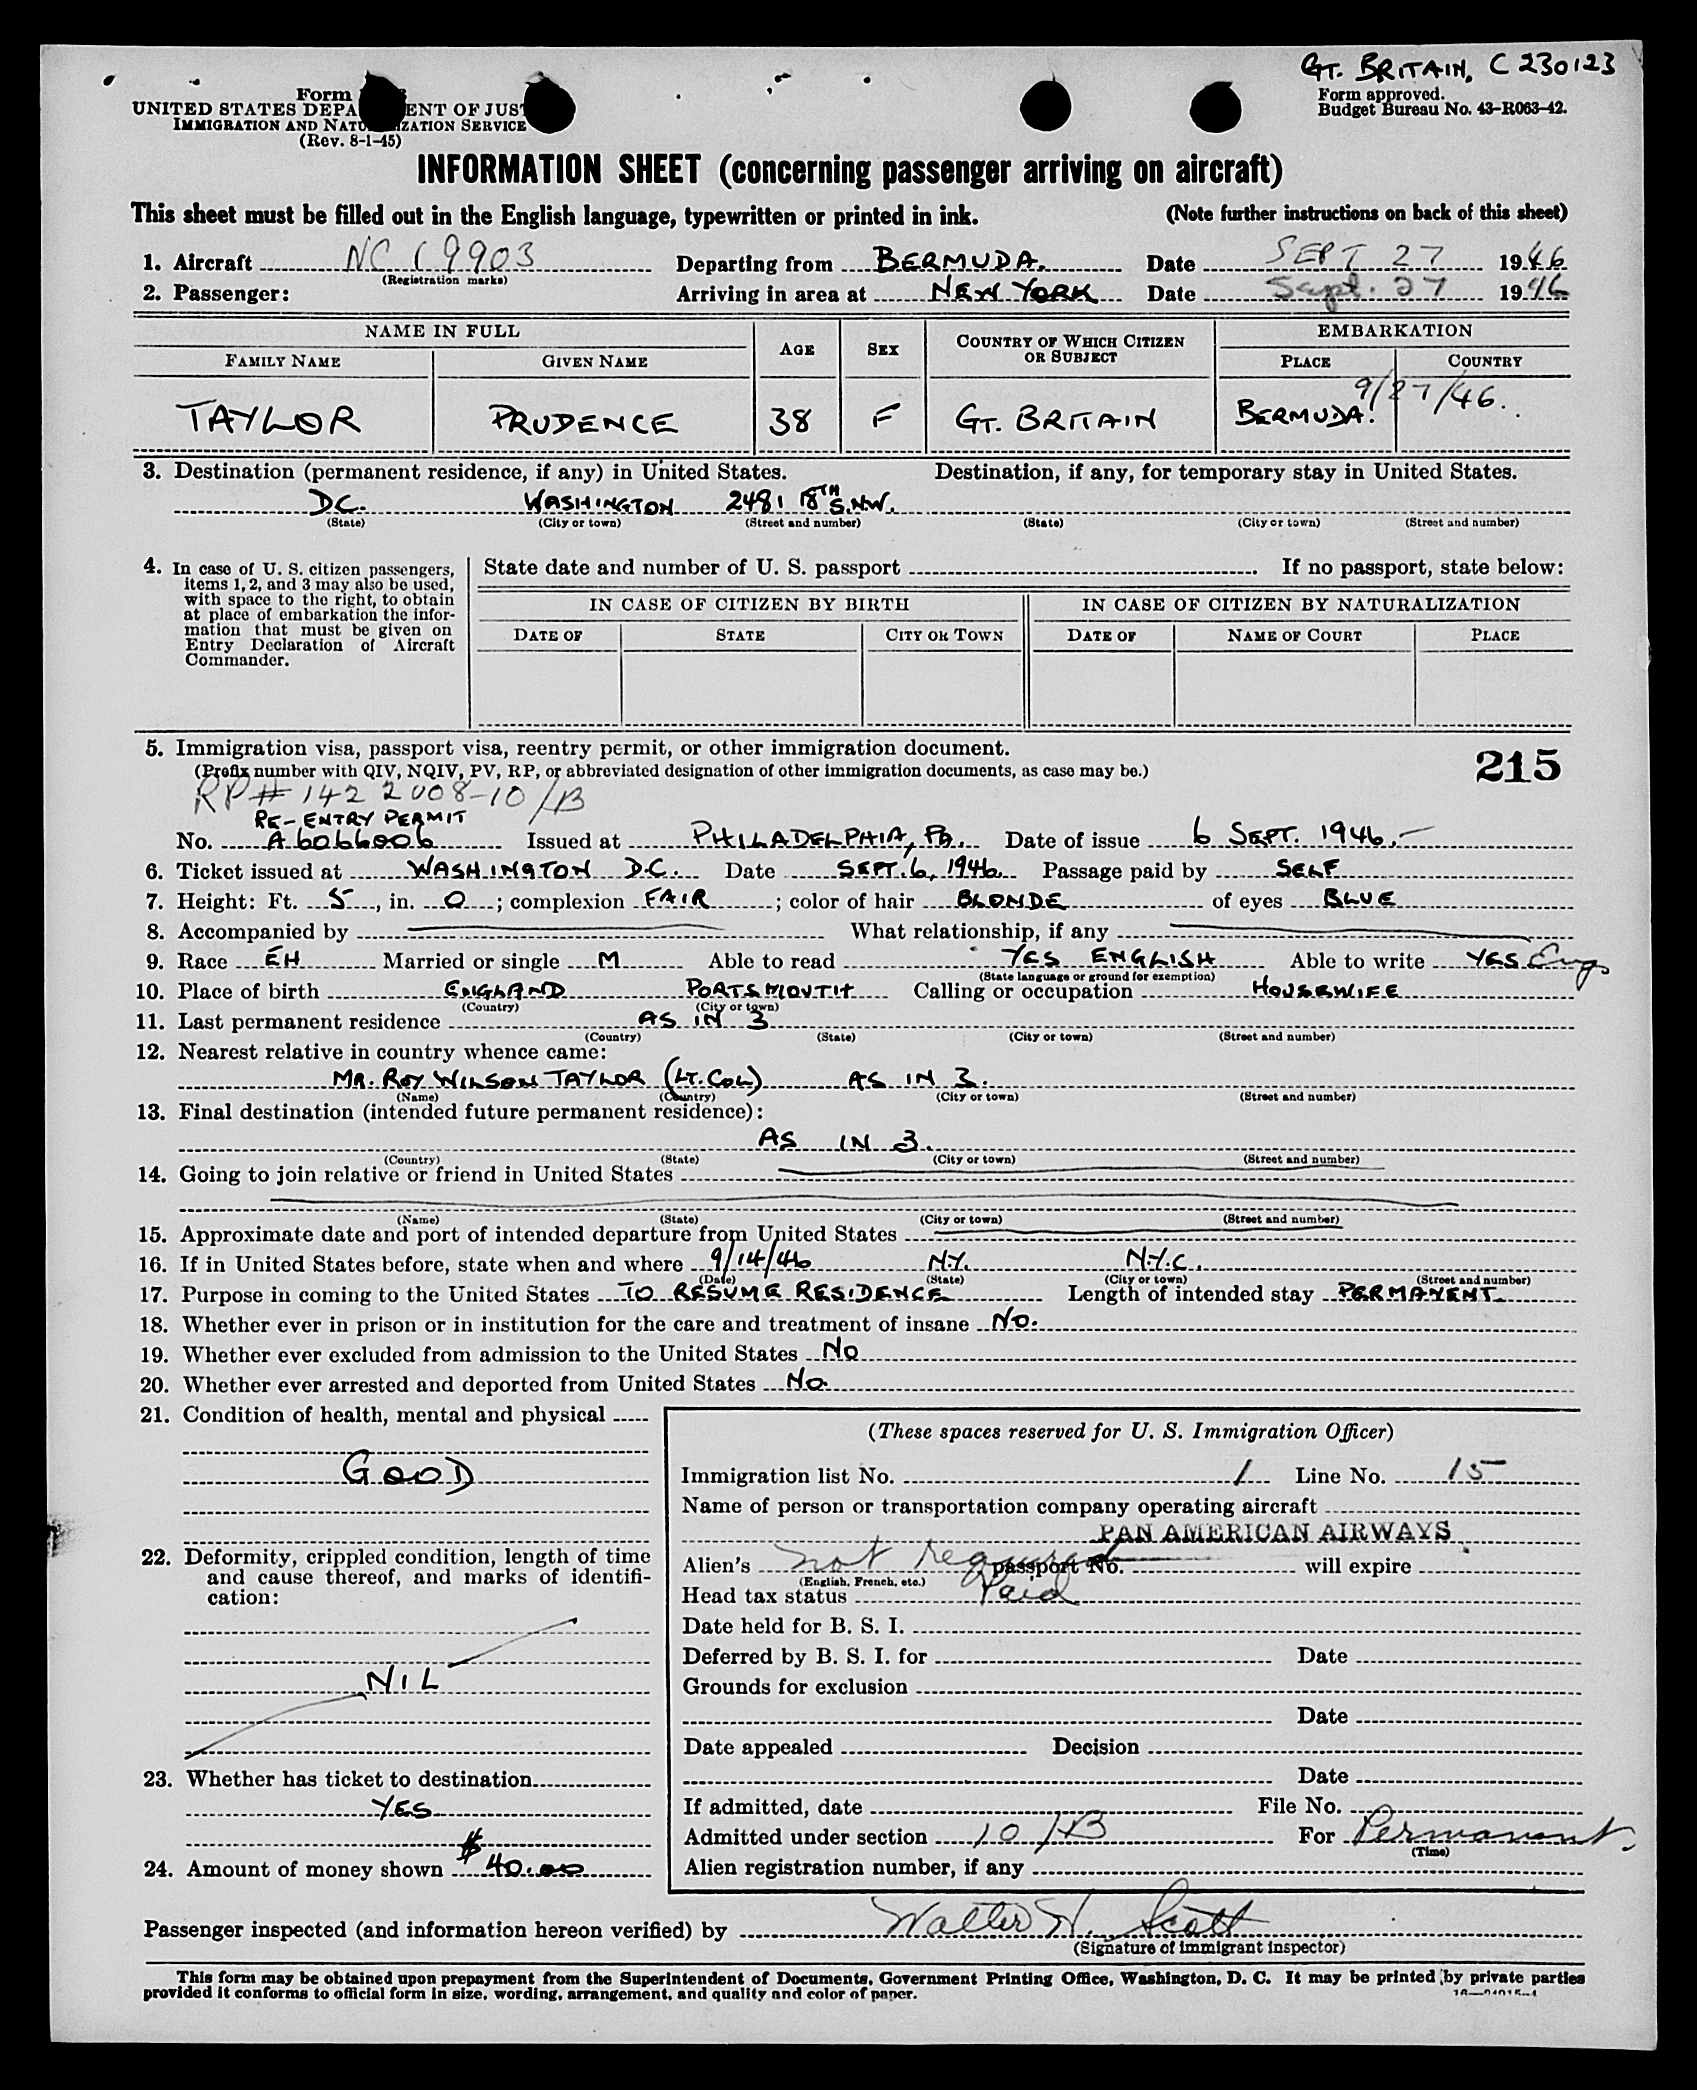 GT. BRITAIN, C 230123
Form
Form approved.
UNITED STATES DEPA ENT OF JUS
Budget Bureau No. 43-R063-42.
IMMIGRATION AND NATU IZATION SERVICE
(Rev. 8-1-45)
INFORMATION SHEET (concerning passenger arriving on aircraft)
This sheet must be filled out in the English language, typewritten or printed in ink. (Note further instructions on back of this sheet)
1. Aircraft NC 19903 Departing from BERMUDA. Date SEPT 27 1946
(Registration marks)
2. Passenger: Arriving in area at NEW YORK Date Sept. 27 1946
NAME IN FULL EMBARKATION
FAMILY NAME GIVEN NAME AGE SEX COUNTRY OF WHICH CITIZEN OR SUBJECT PLACE COUNTRY
9/27/46.
TAYLOR PRUDENCE 38 F GT. BRITAIN BERMUDA.
3. Destination (permanent residence, if any) in United States. Destination, if any, for temporary stay in United States.
DC. WASHINGTON 2481 18TH S.NW.
(State) (City or town) (Street and number) (State) (City or town) (Street and number)
4. In case of U. S. citizen passengers, items 1, 2, and 3 may also be used, with space to the right, to obtain at place of embarkation the information that must be given on Entry Declaration of Aircraft Commander.
State date and number of U. S. passport If no passport, state below:
IN CASE OF CITIZEN BY BIRTH IN CASE OF CITIZEN BY NATURALIZATION
DATE OF STATE CITY OR TOWN DATE OF NAME OF COURT PLACE
5. Immigration visa, passport visa, reentry permit, or other immigration document.
215
(Prefix number with QIV, NQIV, PV, RP, or abbreviated designation of other immigration documents, as case may be.)
RP # 142 2008-10/B
RE-ENTRY PERMIT
No. A6066006 Issued at PHILADELPHIA, PA. Date of issue 6 SEPT. 1946.
6. Ticket issued at WASHINGTON D.C. Date SEPT. 6, 1946 Passage paid by SELF
7. Height: Ft. 5, in. 0; complexion FAIR; color of hair BLONDE of eyes BLUE
8. Accompanied by What relationship, if any
9. Race EH Married or single M Able to read YES ENGLISH Able to write YES Eng
(State language or ground for exemption)
10. Place of birth ENGLAND PORTSMOUTH Calling or occupation HOUSEWIFE
(Country) (City or town)
11. Last permanent residence AS IN 3
(Country) (State) (City or town) (Street and number)
12. Nearest relative in country whence came:
MR. ROY WILSON TAYLOR (LT. COL) AS IN 3.
(Name) (Country) (City or town) (Street and number)
13. Final destination (intended future permanent residence):
AS IN 3.
(Country) (State) (City or town) (Street and number)
14. Going to join relative or friend in United States
(Name) (State) (City or town) (Street and number)
15. Approximate date and port of intended departure from United States
16. If in United States before, state when and where 9/14/46 N.Y. N.Y.C.
(Date) (State) (City or town) (Street and number)
17. Purpose in coming to the United States TO RESUME RESIDENCE Length of intended stay PERMANENT
18. Whether ever in prison or in institution for the care and treatment of insane NO.
19. Whether ever excluded from admission to the United States NO
20. Whether ever arrested and deported from United States NO.
21. Condition of health, mental and physical
GOOD
22. Deformity, crippled condition, length of time
and cause thereof, and marks of identifi-
cation:
NIL
23. Whether has ticket to destination
YES
24. Amount of money shown $40.00
(These spaces reserved for U. S. Immigration Officer)
Immigration list No. 1 Line No. 15
Name of person or transportation company operating aircraft
PAN AMERICAN AIRWAYS
Alien's not required passport No. will expire
(English, French, etc.)
Head tax status Paid
Date held for B. S. I.
Deferred by B. S. I. for Date
Grounds for exclusion
Date
Date appealed Decision
Date
If admitted, date File No.
Admitted under section 10/B For Permanent
(Time)
Alien registration number, if any
Passenger inspected (and information hereon verified) by Walter W. Scott
(Signature of immigrant inspector)
This form may be obtained upon prepayment from the Superintendent of Documents, Government Printing Office, Washington, D. C. It may be printed by private parties
provided it conforms to official form in size, wording, arrangement, and quality and color of paper.